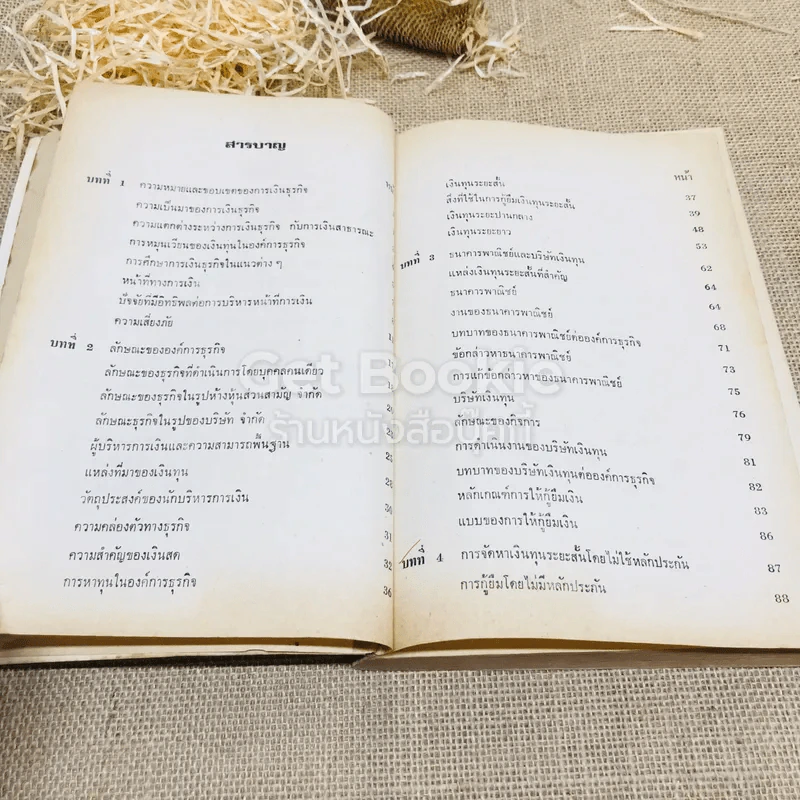 สารบาญ
บทที่ 1 ความหมายและขอบเขตของการเงินธุรกิจ
ความเป็นมาของการเงินธุรกิจ
ความแตกต่างระหว่างการเงินธุรกิจ กับการเงินสาธารณะ
การหมุนเวียนของเงินทุนในองค์การธุรกิจ
การศึกษาการเงินธุรกิจในแนวต่าง ๆ
หน้าที่ทางการเงิน
ปัจจัยที่มีอิทธิพลต่อการบริหารหน้าที่การเงิน
ความเสี่ยงภัย
บทที่ 2 ลักษณะขององค์การธุรกิจ
ลักษณะของธุรกิจที่ดำเนินการโดยบุคคลคนเดียว
ลักษณะของธุรกิจในรูปห้างหุ้นส่วนสามัญ จำกัด
ลักษณะธุรกิจในรูปของบริษัท จำกัด
ผู้บริหารการเงินและความสามารถพื้นฐาน
แหล่งที่มาของเงินทุน
วัตถุประสงค์ของนักบริหารการเงิน 30
ความคล่องตัวทางธุรกิจ 31
ความสำคัญของเงินสด 32
การหาทุนในองค์การธุรกิจ 36
หน้า
เงินทุนระยะสั้น 37
สิ่งที่ใช้ในการกู้ยืมเงินทุนระยะสั้น 39
เงินทุนระยะปานกลาง 48
เงินทุนระยะยาว 53
บทที่ 3 ธนาคารพาณิชย์และบริษัทเงินทุน 62
แหล่งเงินทุนระยะสั้นที่สำคัญ 64
ธนาคารพาณิชย์ 64
งานของธนาคารพาณิชย์ 68
บทบาทของธนาคารพาณิชย์ต่อองค์การธุรกิจ 71
ข้อกล่าวหาธนาคารพาณิชย์ 73
การแก้ข้อกล่าวหาของธนาคารพาณิชย์ 75
บริษัทเงินทุน 76
ลักษณะของกิจการ 79
การดำเนินงานของบริษัทเงินทุน 81
บทบาทของบริษัทเงินทุนต่อองค์การธุรกิจ 82
หลักเกณฑ์การให้กู้ยืมเงิน 83
แบบของการให้กู้ยืมเงิน 86
บทที่ 4 การจัดหาเงินทุนระยะสั้นโดยไม่ใช้หลักประกัน 87
การกู้ยืมโดยไม่มีหลักประกัน 88
Get Bookie
ร้านหนังสือบุ๊คกี้